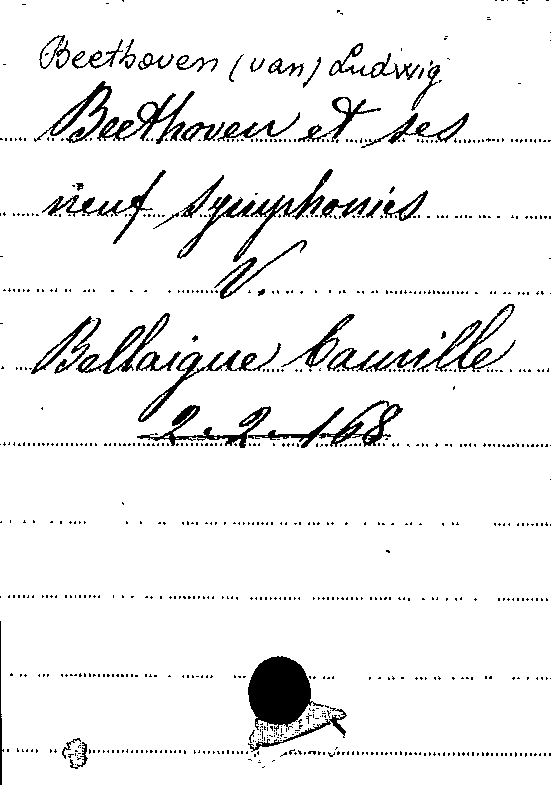 Beethoven (van) Ludwig
Beethoven et ses
neuf symphonies
V.
Bellaigue Camille
2.2.168